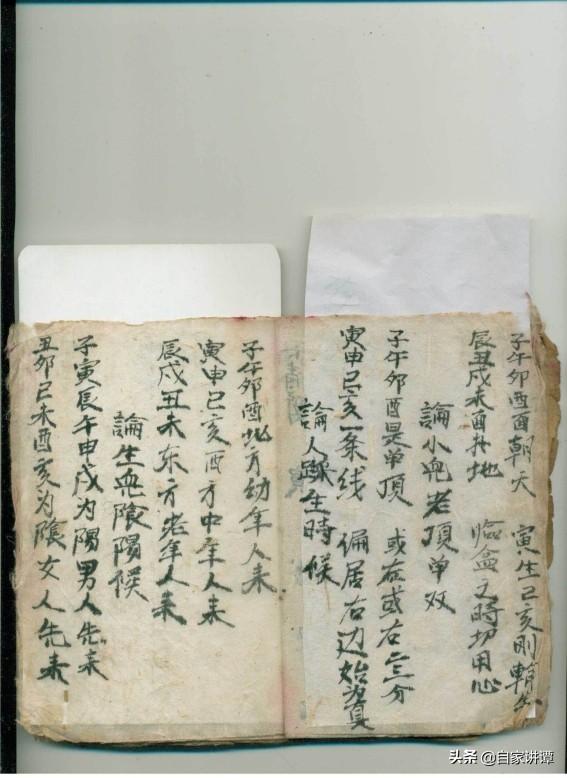 子午卯酉面朝天 寅生己亥刚
辰丑戌未面扑地 临盆之時切用心
論小兒老頂单双
子午卯酉是单頂 或在或右二三分
寅申己亥一条线 偏居右边始為真
論人踩生時候
子午卯酉北方幼年人来
寅申己亥西方中年人来
辰戌丑未东方老年人来
論生兒陰陽候
子寅辰午申戌为陽男人先来
丑卯己未酉亥为陰女人先来
头条 @自家讲谭